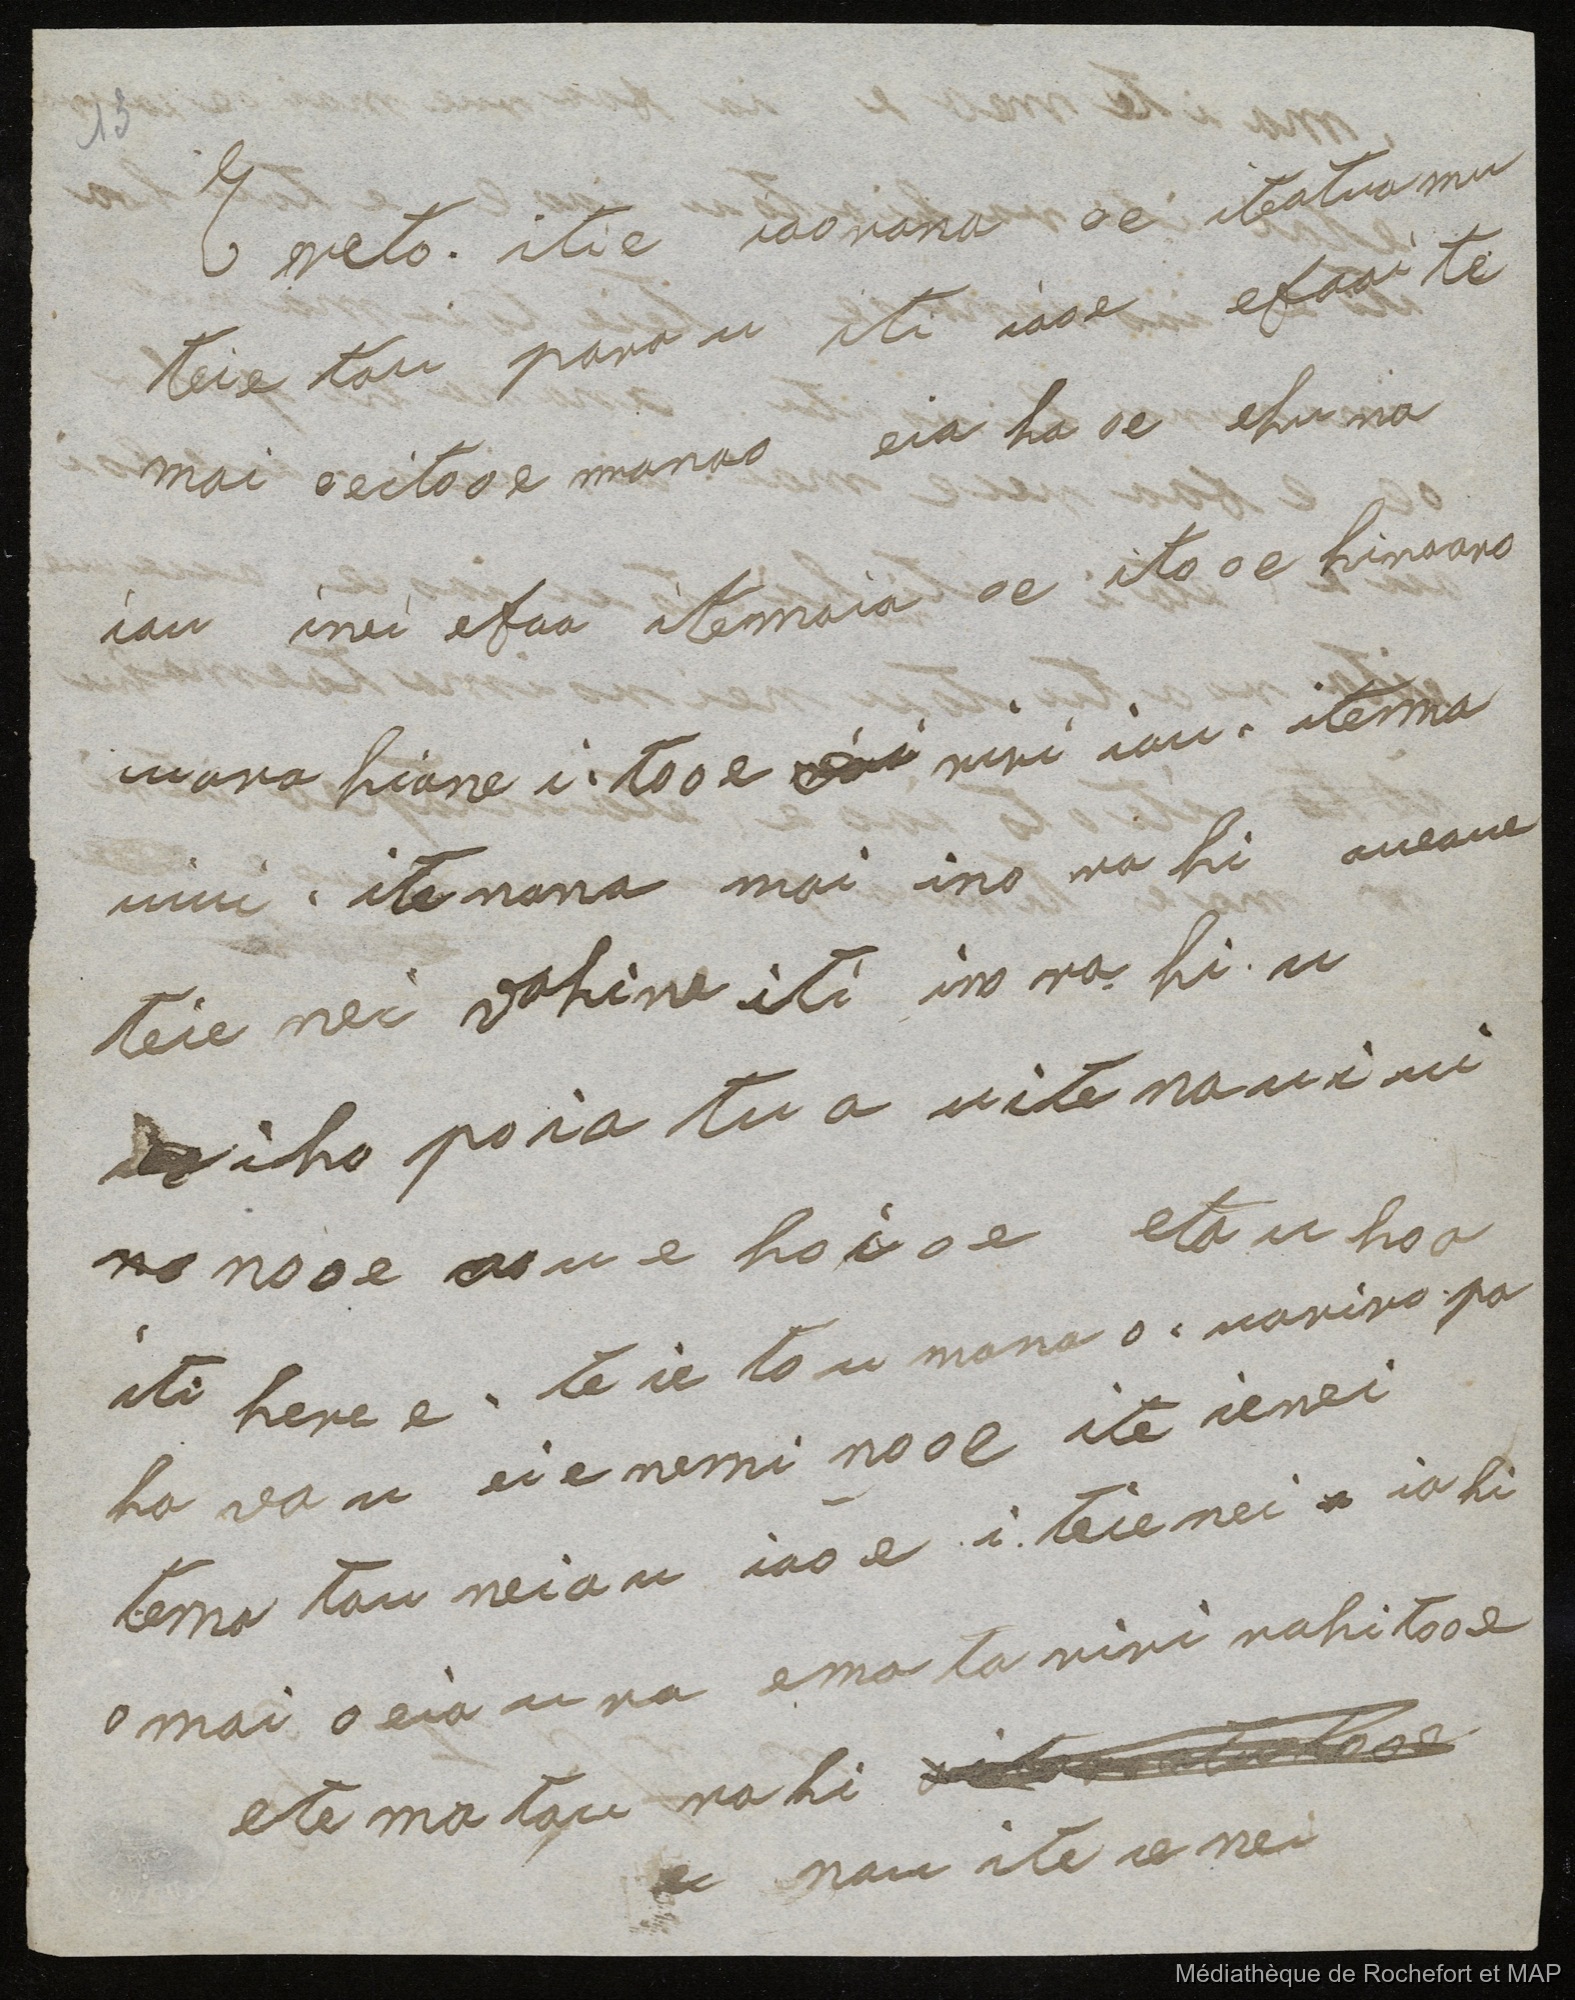 13
E reto. itie iaorana oe iteatua mu
teie tau parau iti iaoe efaaite
mai oeitooe manao eia ha oe ehuna
iau inei efaa itemaia oe itooe hinaaro
uara hiane i. tooe riri iau. itema
uiui. itenana mai ino rahi aueaue
teie nei vahine iti ino ra hi. u
iho poia tu a uite na ui ui
no nooe aue hoi oe etau hoa
iti here e. te ie tou mana o. uariro. pa
ha vau eie nemi nooe ite ienei
tema tau neiau iaoe i. teienei ia hi
o mai oeiaura ema ta riri rahitooe
ete ma tau rahi
e nau ite ienei
Médiathèque de Rochefort et MAP